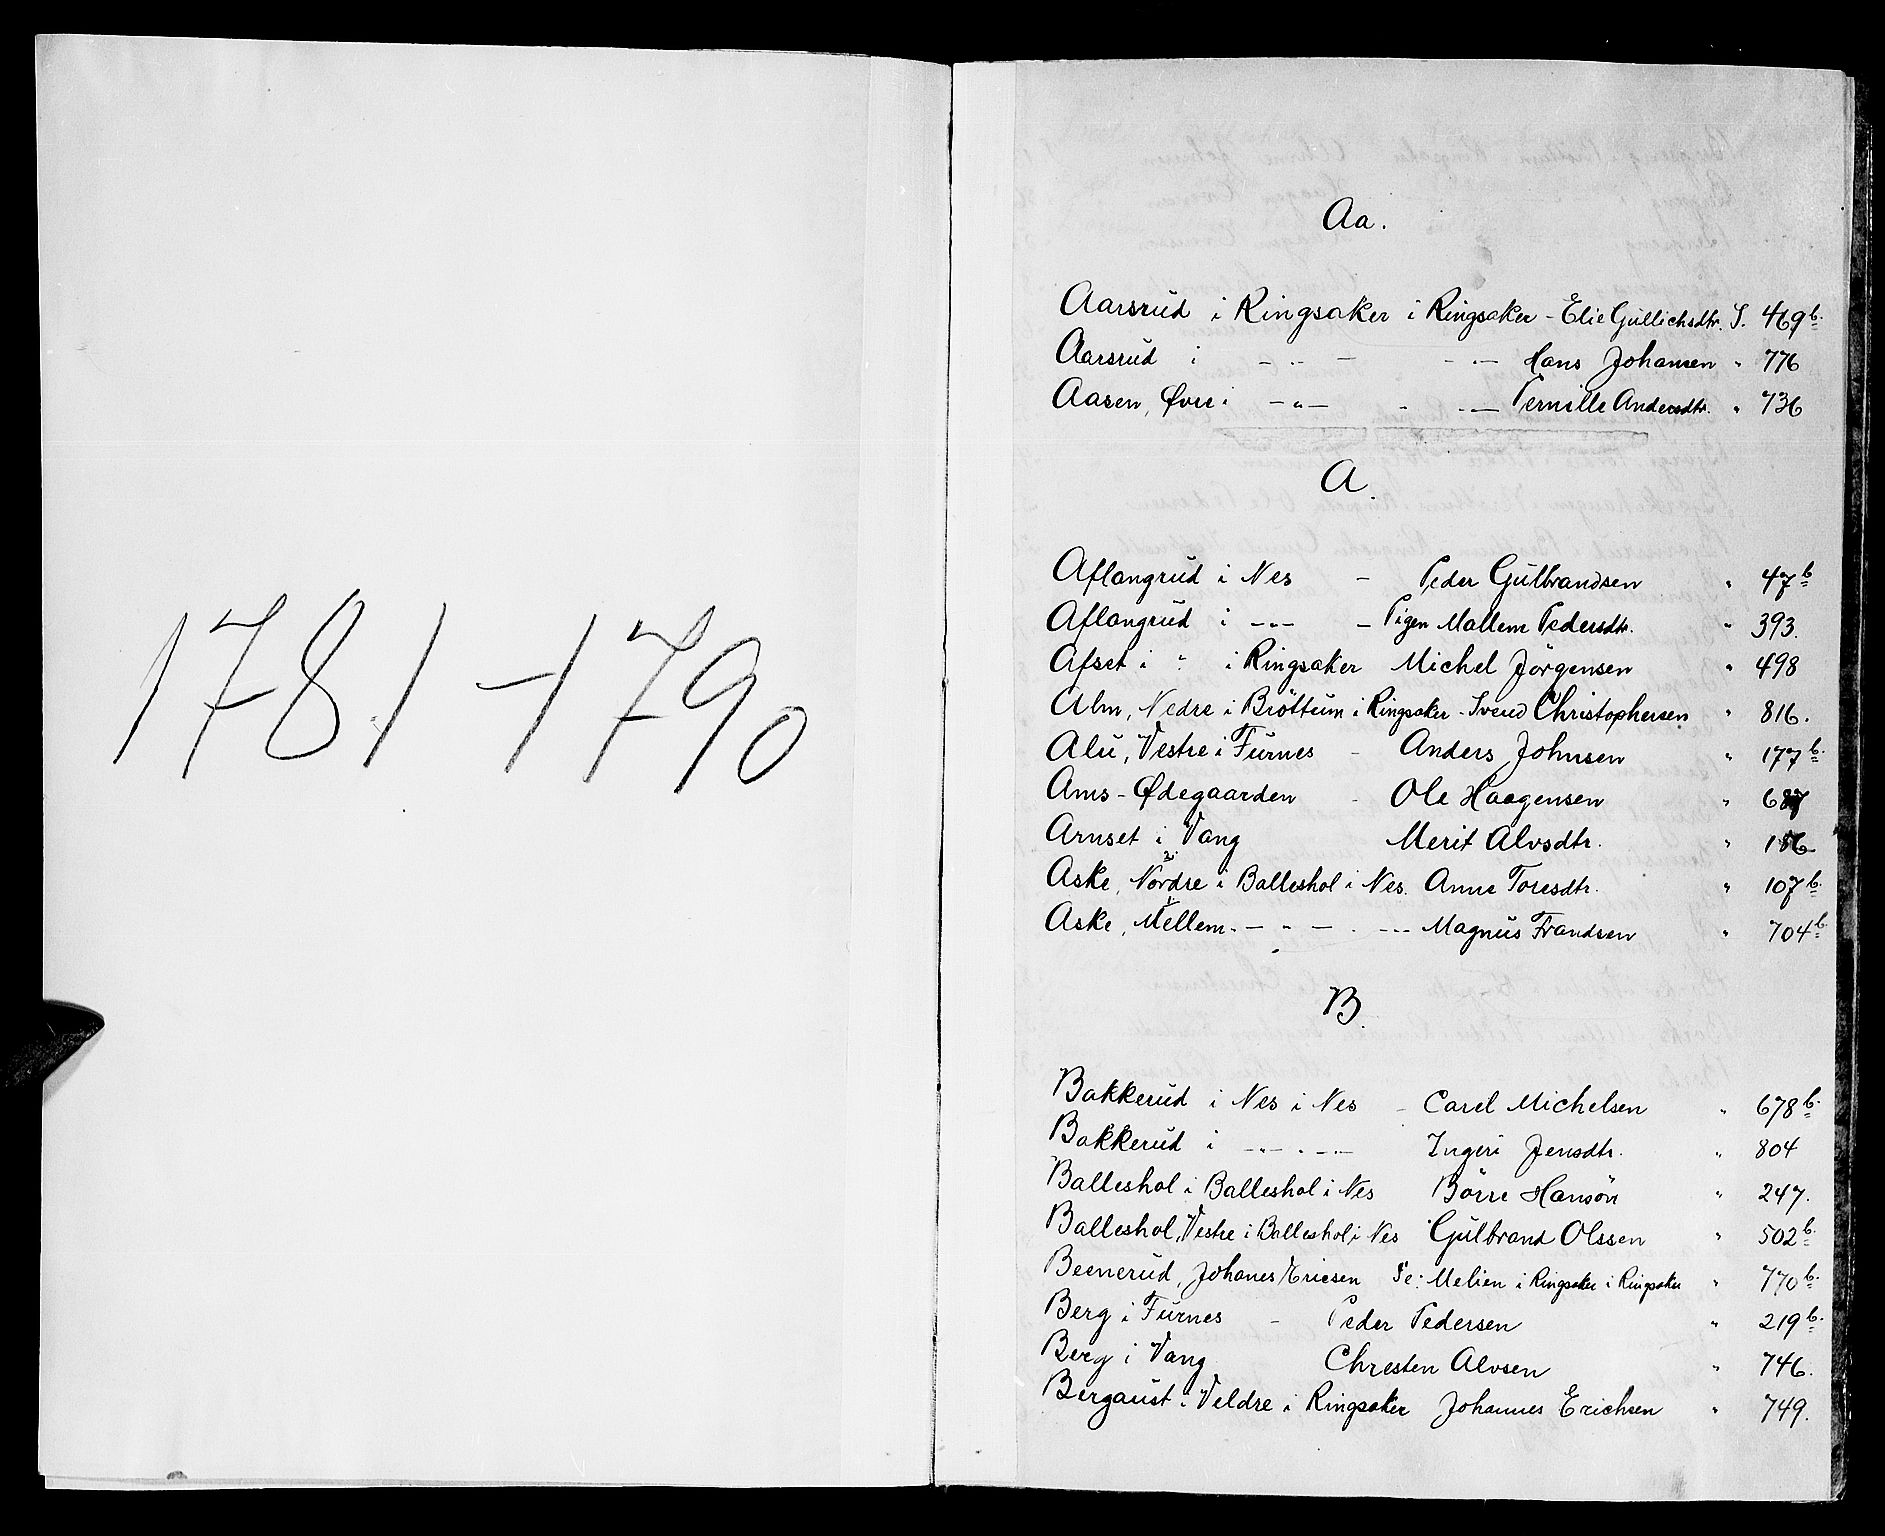 1781-1790
Aa.
Aarsrud i Ringsaker i Ringsaker - Elie Gullichsdtr. S. 469 b.
Aarsrud i - " - - " - Hans Johansen " 776
Aasen, Øvre i - " - " - " - Pernille Andersdtr. " 736
A.
Aflangrud i Nes - Peder Gulbrandsen " 47 b
Aflangrud i - " - - Pigen Mallem Pedersdtr. " 393.
Afset i " i Ringsaker Michel Jörgensen " 498
Alm, Nedre i Bröttum i Ringsaker - Svend Christophersen " 816.
Alu, Vestre i Furnes - Anders Johnsen " 177 b.
Ams-Ødegaarden - Ole Haagensen " 687
Arnset i Vang Merit Alvsdtr. "
Aske, Nordre i Balleshol i Nes. Anne Toresdtr. " 107 b.
Aske, Mellem - " - - " - Magnus Frandsen " 704 b.
B.
Bakkerud i Nes i Nes - Carel Michelsen " 678 b.
Bakkerud i - " - " - " - Ingeri Jensdtr. " 804
Balleshol i Balleshol i Nes Börre Hansön " 247.
Balleshol, Vestre i Balleshol i Nes Gulbrand Olssen " 502 b.
Beenerud, Johanes Ericsen Se: Melien i Ringsaker i Ringsaker " 770 b.
Berg i Furnes - Peder Pedersen " 219 b.
Berg i Vang Chresten Alvsen " 746.
Bergaust i Veldre i Ringsaker Johannes Erichsen " 749.